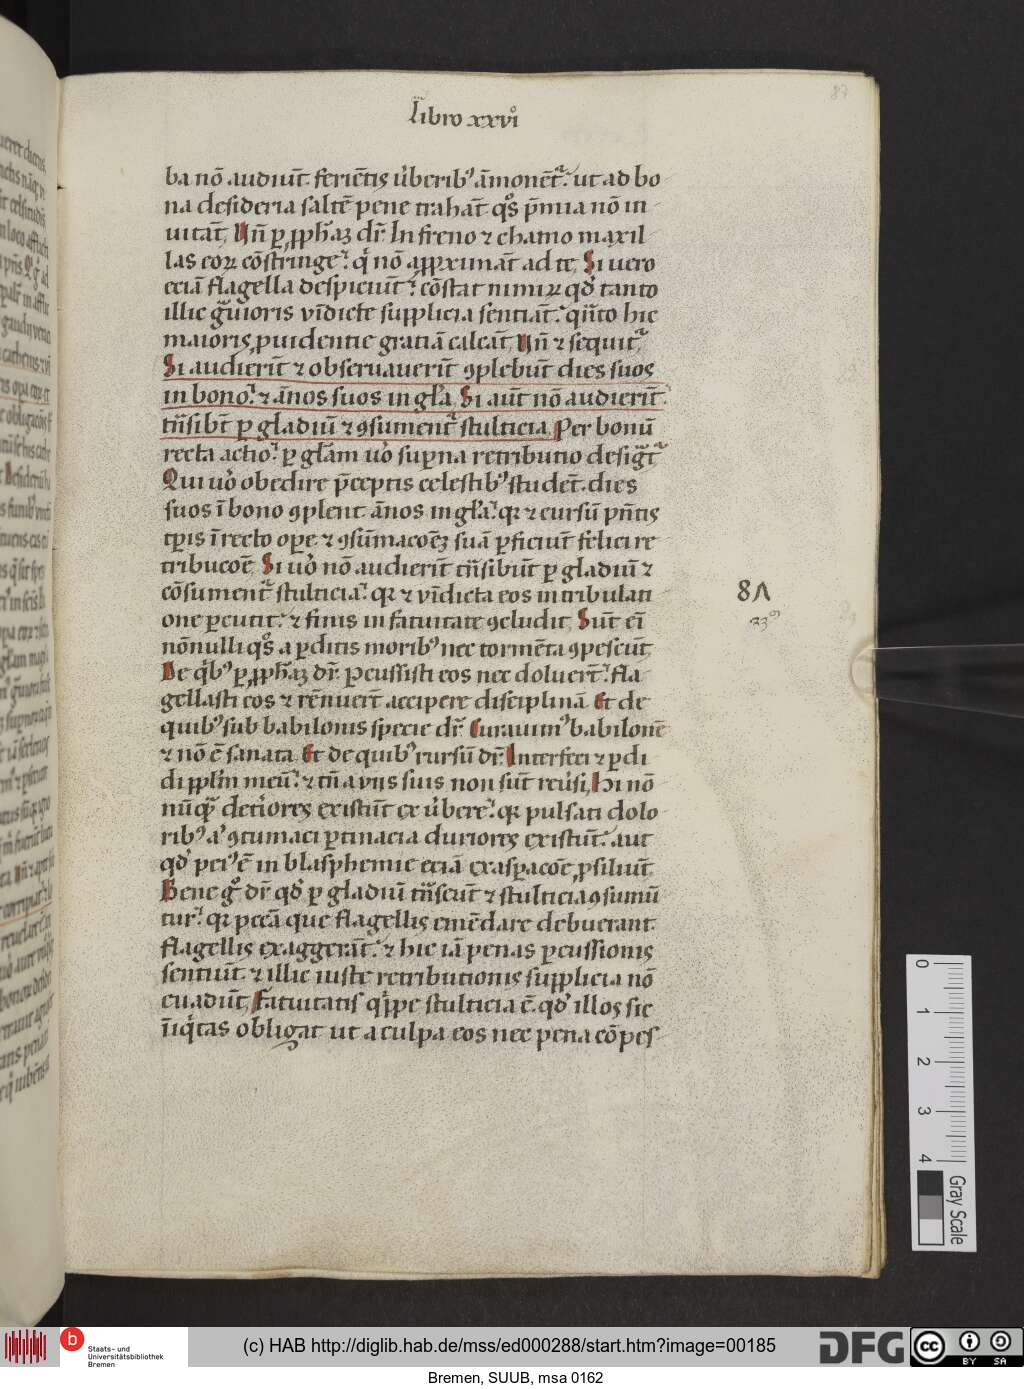 libro xxvi°
87
ba nō audiūt. feriētis ůberibꝰ āmonēt᷑. ut ad bo
na desideria saltē pene trahāt qͦs p̄mia nō in
uitāt. Uñ ꝑ ꝓph̄aꝫ dr̄. In freno ⁊ chamo maxil
las eoꝝ cōstringe. qͥ nō aꝓximāt ad te. Si uero
eciā flagella despiciūt. cōstat nimiꝝ qd̓ tanto
illic gᷓuioris vīdicte supplicia sentiāt. qͣnto hic
maioris ꝓuidentie gratiā calcāt. Uñ ⁊ sequit᷑
Si audierīt ⁊ obseruauerīt ꝯplebūt dies suos
in bono. ⁊ ānos suos in gl̄a. Si aūt nō audierīt
tn̄sibūt ꝑ gladiū ⁊ ꝯsument᷑ stulticia. Per bonū
recta actio. ꝑ gl̄am uo̓ suꝑna retributio desigᷓt᷑
Qui uo̓ obedire p̄ceptis celestibꝰ studēt. dies
suos ī bono ꝯplent ānos in gl̄a. qꝛ ⁊ cursū pn̄tis
tꝑis ī recto oꝑe ⁊ ꝯsūmacōeꝫ suā ꝑficiūt felici re
tribucōe. Si uo̓ nō audierīt tn̄sibūt ꝑ gladiū ⁊
cōsument᷑ stulticia. qꝛ ⁊ vīdicta eos in tribulati
one ꝑcutit. ⁊ finis in fatuitate ꝯcludit. Sūt eī
nōnulli qͦs a ꝑditis moribꝰ nec tormēta ꝯpescūt
De qͥbꝰ ꝑ ꝓph̄aꝫ dr̄. Percussisti eos nec doluerūt. fla
gellasti eos ⁊ rēnuerīt accipere disciplinā. Et de
quibꝰ sub babilonis specie dr̄. Curauimꝰ babilonē
⁊ nō ē sanata. Et de quibꝰ rursū dr̄. Interfeci ⁊ ꝑdi
di ppl̄m meū. ⁊ tn̄ a viis suis non sūt reůsi. Hi nō
nūqᷓ deti̓ores existūt ex ůbere. qꝛ pulsati dolo
ribꝰ aͭ ꝯtumaci ꝑtinacia duriores existūt. aut
qd̓ peiꝰ ē in blasphemie eciā exasꝑacōe ꝓsiliūt
Bene gͦ dr̄ qd̓ ꝑ gladiū tn̄seūt ⁊ stulticia ꝯsumū
tur. qꝛ pccā que flagellis emēdare debuerant
flagellis exaggerāt. ⁊ hic iā penas ꝑcussionis
sentiūt. ⁊ illic iuste retributionis supplicia nō
euadūt. Fatuitatis qͥppe stulticia ē. qd̓ illos sic
īiqͥtas obligat ut a culpa eos nec pena cōpes
0
1
2
3
4
Gray Scale
b
Staats- und
Universitätsbibliothek
Bremen
(c) HAB http://diglib.hab.de/mss/ed000288/start.htm?image=00185
DFG
cc BY SA
Bremen, SUUB, msa 0162